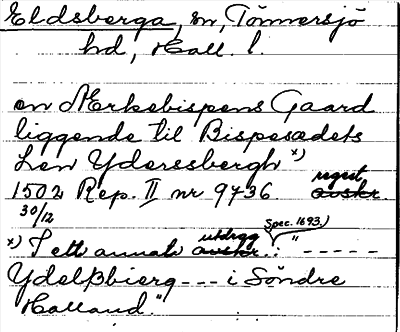 Eldsberga, sn, Tönnersjö
hd, Hall. l.
en Ærkebispens Gaard
liggende til Bispesædets
Len Yderssbergh x)
1502 Rep. II nr 9736. regist avskr.
30/12
x) I ett annat utdrag avskr.: (Spec. 1693) " - - - - -
Ydelßbierg - - - i Söndre
Halland."